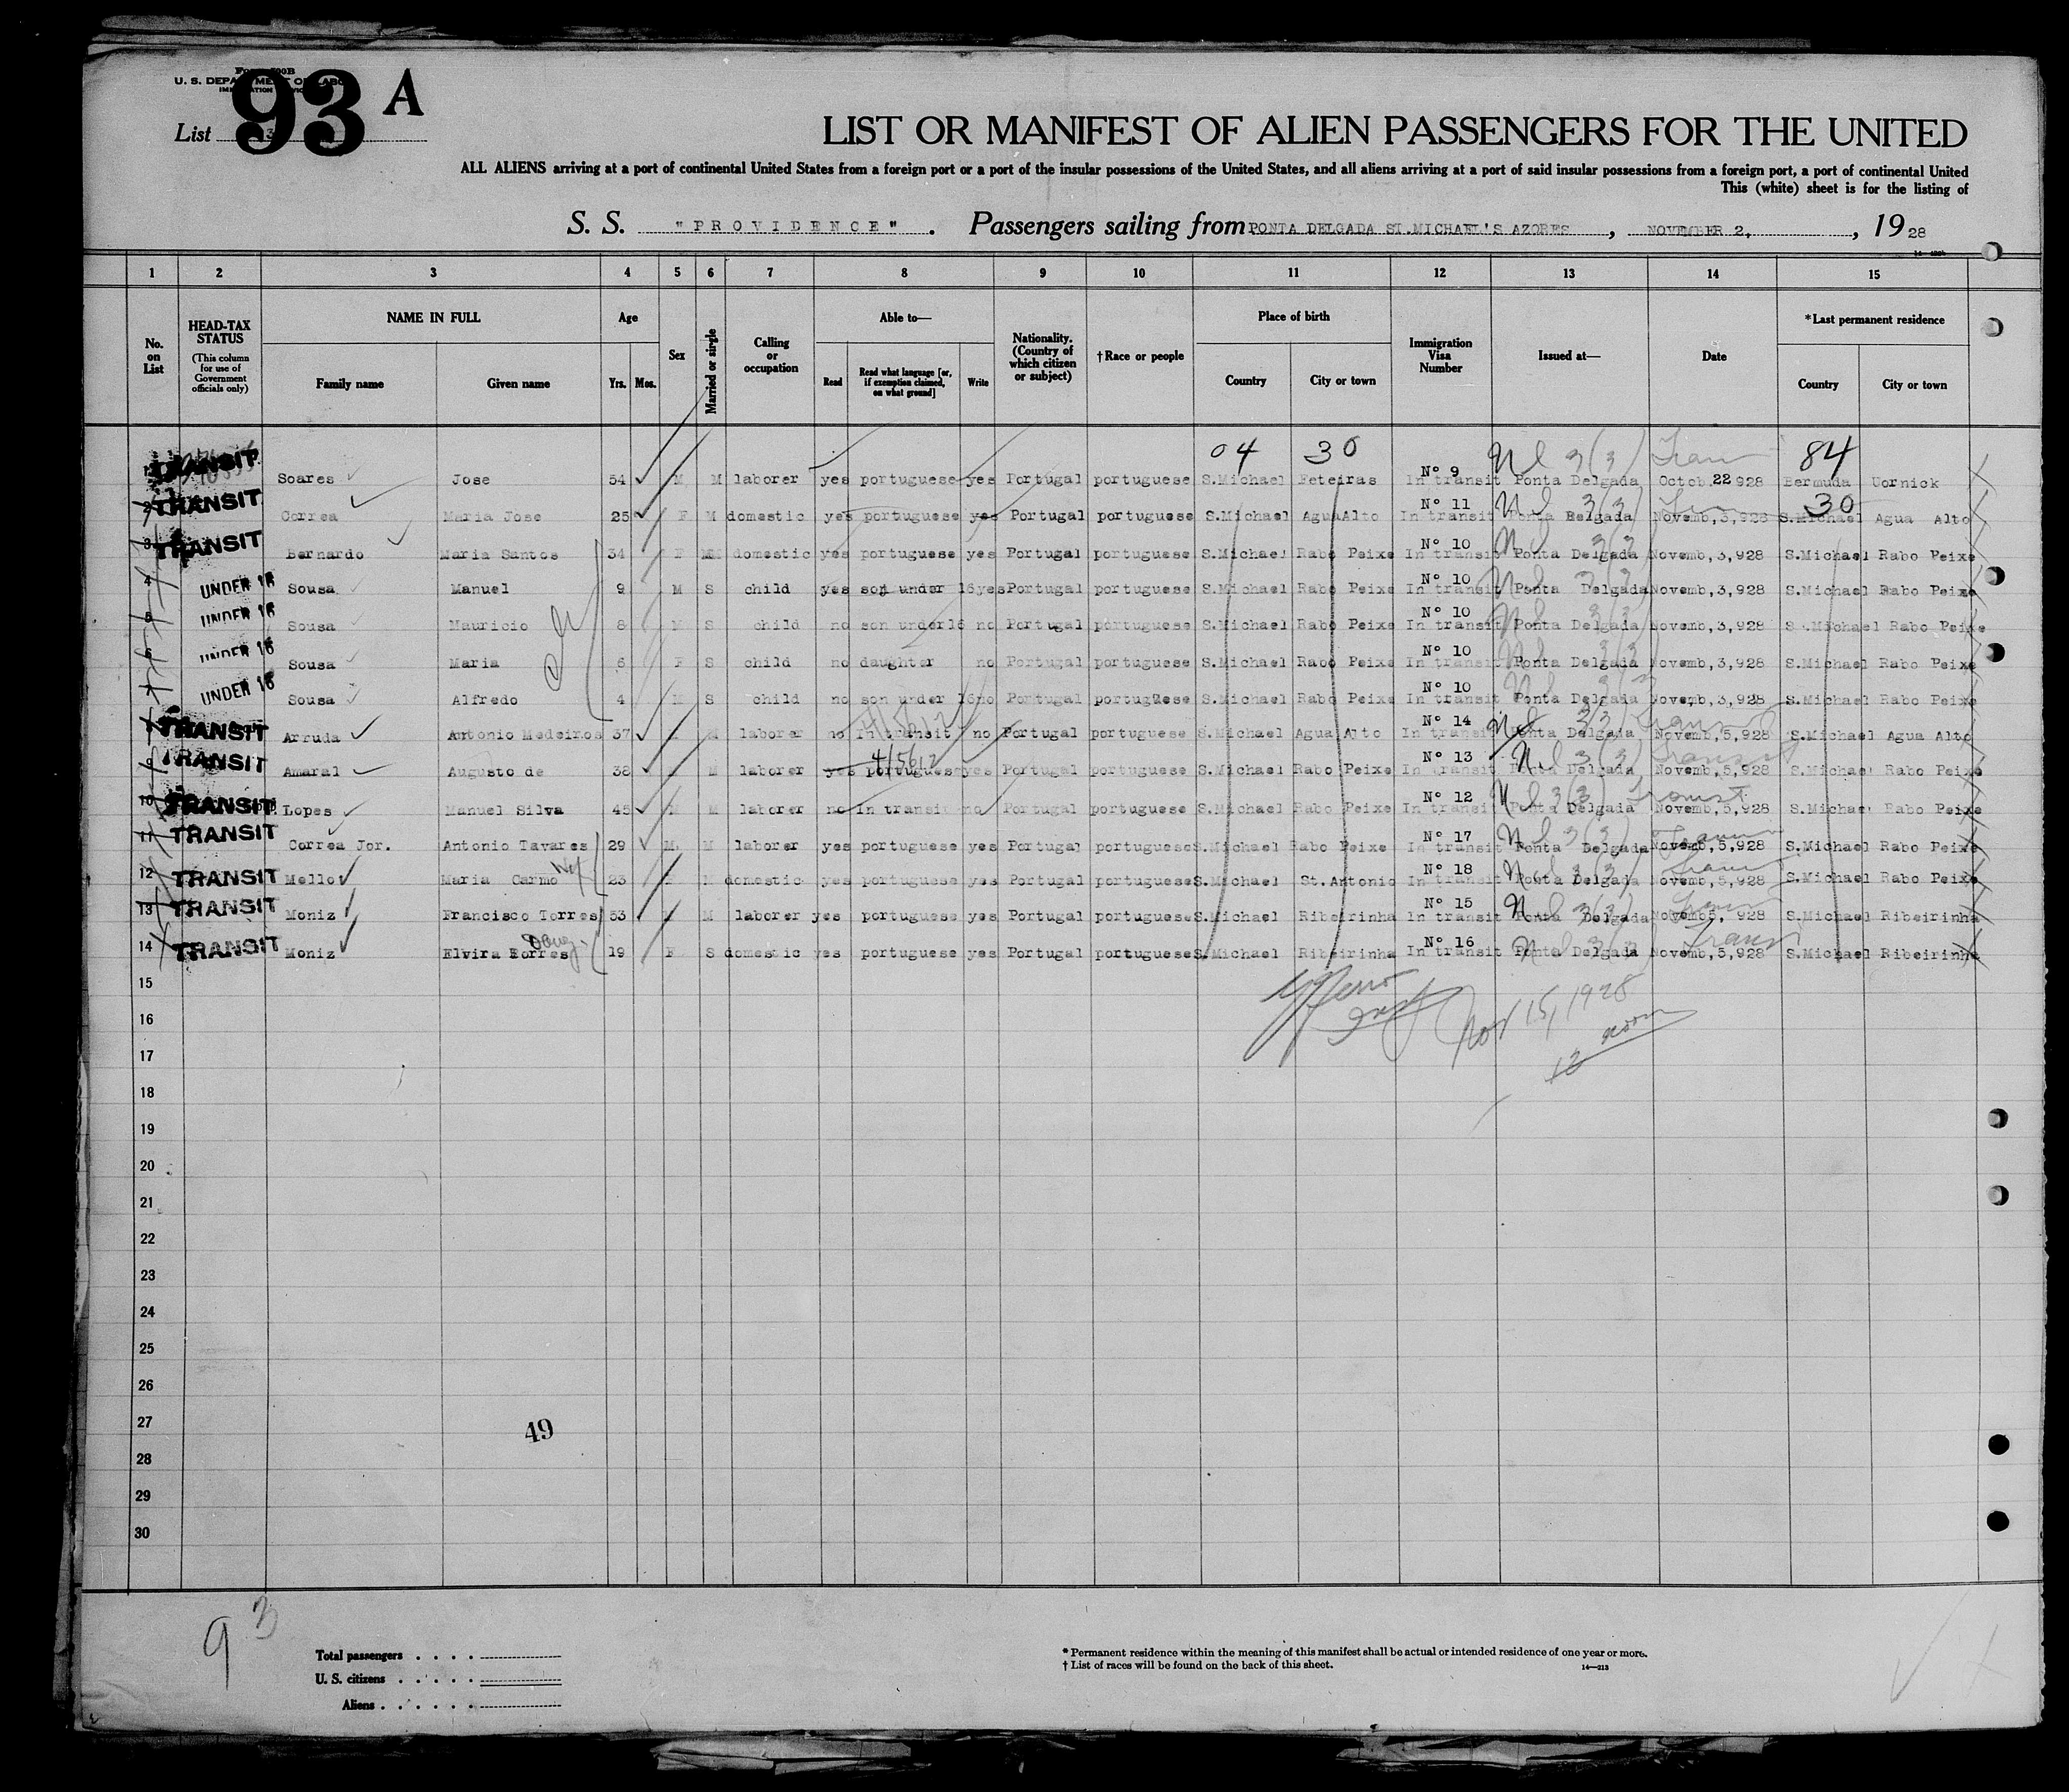 Form 500B
U. S. DEPARTMENT OF LABOR
IMMIGRATION SERVICE
93 A
List
LIST OR MANIFEST OF ALIEN PASSENGERS FOR THE UNITED
ALL ALIENS arriving at a port of continental United States from a foreign port or a port of the insular possessions of the United States, and all aliens arriving at a port of said insular possessions from a foreign port, a port of continental United
This (white) sheet is for the listing of
S. S. "PROVIDENCE". Passengers sailing from PONTA DELGADA ST.MICHAEL'S AZORES, NOVEMBER 2, , 19 28
1 2 3 4 5 6 7 8 9 10 11 12 13 14 15
No. on List
HEAD-TAX STATUS (This column for use of Government officials only)
NAME IN FULL
Family name Given name
Age
Yrs. Mos.
Sex
Married or single
Calling or occupation
Able to—
Read Read what language [or, if exemption claimed, on what ground] Write
Nationality. (Country of which citizen or subject)
†Race or people
Place of birth
Country City or town
Immigration Visa Number
Issued at—
Date
*Last permanent residence
Country City or town
04 30 84
1 TRANSIT Soares Jose 54 M M laborer yes portuguese yes Portugal portuguese S.Michael Feteiras Nº 9 In transit Ponta Delgada Octob.22 928 Bermuda Uornick
30
2 TRANSIT Correa Maria Jose 25 F M domestic yes portuguese yes Portugal portuguese S.Michael AguaAlto Nº 11 In transit Ponta Delgada Novemb,3,928 S.Michael Agua Alto
3 TRANSIT Bernardo Maria Santos 34 F M domestic yes portuguese yes Portugal portuguese S.Michael Rabo Peixe Nº 10 In transit Ponta Delgada Novemb,3,928 S.Michael Rabo Peixe
4 UNDER 16 Sousa Manuel 9 M S child yes son under 16 yes Portugal portuguese S.Michael Rabo Peixe Nº 10 In transit Ponta Delgada Novemb,3,928 S.Michael Rabo Peixe
5 UNDER 16 Sousa Mauricio 8 M S child no son under16 no Portugal portuguese S.Michael Rabo Peixe Nº 10 In transit Ponta Delgada Novemb,3,928 S.Michael Rabo Peixe
6 UNDER 16 Sousa Maria 6 F S child no daughter no Portugal portuguese S.Michael Rabo Peixe Nº 10 In transit Ponta Delgada Novemb,3,928 S.Michael Rabo Peixe
7 UNDER 16 Sousa Alfredo 4 M S child no son under 16 no Portugal portuguese S.Michael Rabo Peixe Nº 10 In transit Ponta Delgada Novemb,3,928 S.Michael Rabo Peixe
8 TRANSIT Arruda Antonio Medeiros 37 M laborer no In transit no Portugal portuguese S.Michael Agua Alto Nº 14 In transit Ponta Delgada Novemb,5,928 S.Michael Agua Alto
9 TRANSIT Amaral Augusto de 38 M laborer yes portuguese yes Portugal portuguese S.Michael Rabo Peixe Nº 13 In transit Ponta Delgada Novemb,5,928 S.Michael Rabo Peixe
10 TRANSIT Lopes Manuel Silva 45 M M laborer no in transit no Portugal portuguese S.Michael Rabo Peixe Nº 12 In transit Ponta Delgada Novemb,5,928 S.Michael Rabo Peixe
11 TRANSIT Correa Jor. Antonio Tavares 29 M M laborer yes portuguese yes Portugal portuguese S.Michael Rabo Peixe Nº 17 In transit Ponta Delgada Novemb,5,928 S.Michael Rabo Peixe
12 TRANSIT Mello Maria Carmo 23 F M domestic yes portuguese yes Portugal portuguese S.Michael St.Antonio Nº 18 In transit Ponta Delgada Novemb,5,928 S.Michael Rabo Peixe
13 TRANSIT Moniz Francisco Torres 53 M laborer yes portuguese yes Portugal portuguese S.Michael Ribeirinha Nº 15 In transit Ponta Delgada Novemb5, 928 S.Michael Ribeirinha
14 TRANSIT Moniz Elvira Torres Daug. 19 F S domestic yes portuguese yes Portugal portuguese S.Michael Ribeirinha Nº 16 In transit Ponta Delgada Novemb,5,928 S.Michael Ribeirinha
15
Nov 15, 1928
16
12 noon
17
18
19
20
21
22
23
24
25
26
27
49
28
29
30
93
Total passengers
U. S. citizens
Aliens
* Permanent residence within the meaning of this manifest shall be actual or intended residence of one year or more.
† List of races will be found on the back of this sheet.
14—213